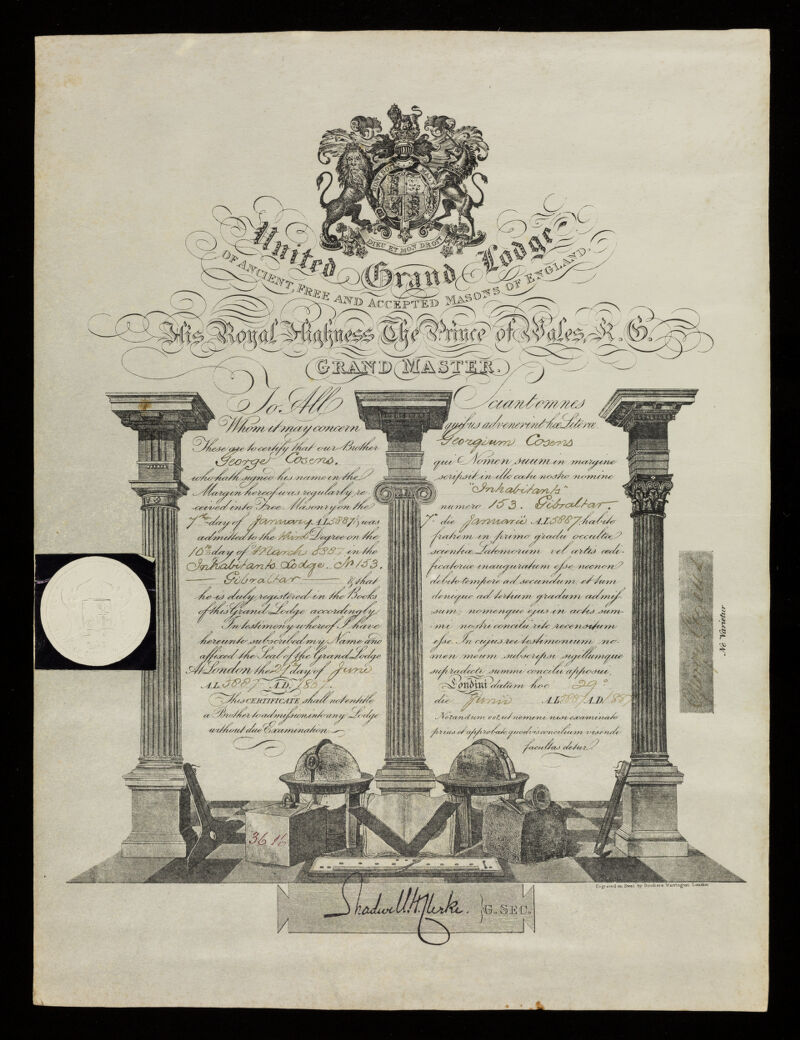 DIEU ET MON DROIT
United Grand Lodge
OF ANCIENT, FREE AND ACCEPTED MASONS OF ENGLAND.
His Royal Highness The Prince of Wales, K. G.
GRAND MASTER.
To All
Whom it may concern
These are to certify that our Brother
George Cosens.
who hath signed his name in the
Margin hereof was regularly re
ceived into Free Masonry on the
7th day of January A.L. 5887, was
admitted to the third Degree on the
10th day of March 5887 in the
Inhabitants Lodge. No 153.
Gibraltar & that
he is duly registered in the Books
of this Grand Lodge accordingly
In testimony whereof I have
hereunto subscribed my Name and
affixed the Seal of the Grand Lodge
At London the 29th day of June
A.L. 5887 A.D. 1887.
This CERTIFICATE shall not entitle
a Brother to admission into any Lodge
without due Examination
Sciant omnes
quibus advenerint hæ Literæ
Georgium Cosens
qui Nomen suum in margine
scripsit in illo cætu nostro nomine
"Inhabitants"
numero 153. Gibraltar.
7o die Januarii A.L. 5887, habito
fratrem in primo gradu occultæ
scientiæ Latomorum vel artis ædi-
ficatoriæ inauguratum esse necnon
debito tempore ad secundum et tum
denique ad tertium gradum admis-
sum, nomenque ejus in actis sum-
mi nostri concilii rite recensitum
esse. In cujus rei testimonium no-
men meum subscripsi sigillumque
supradicti summi concilii apposui.
Londini datum hoc 29o
die Junii A.L. 5887 A.D. 1887
Notandum est, ut nemini nisi examinato
prius et approbato quodvis concilium visendi
facultas detur.
Ne Varietur
3616
Shadwell H. Clerke. G. SEC.